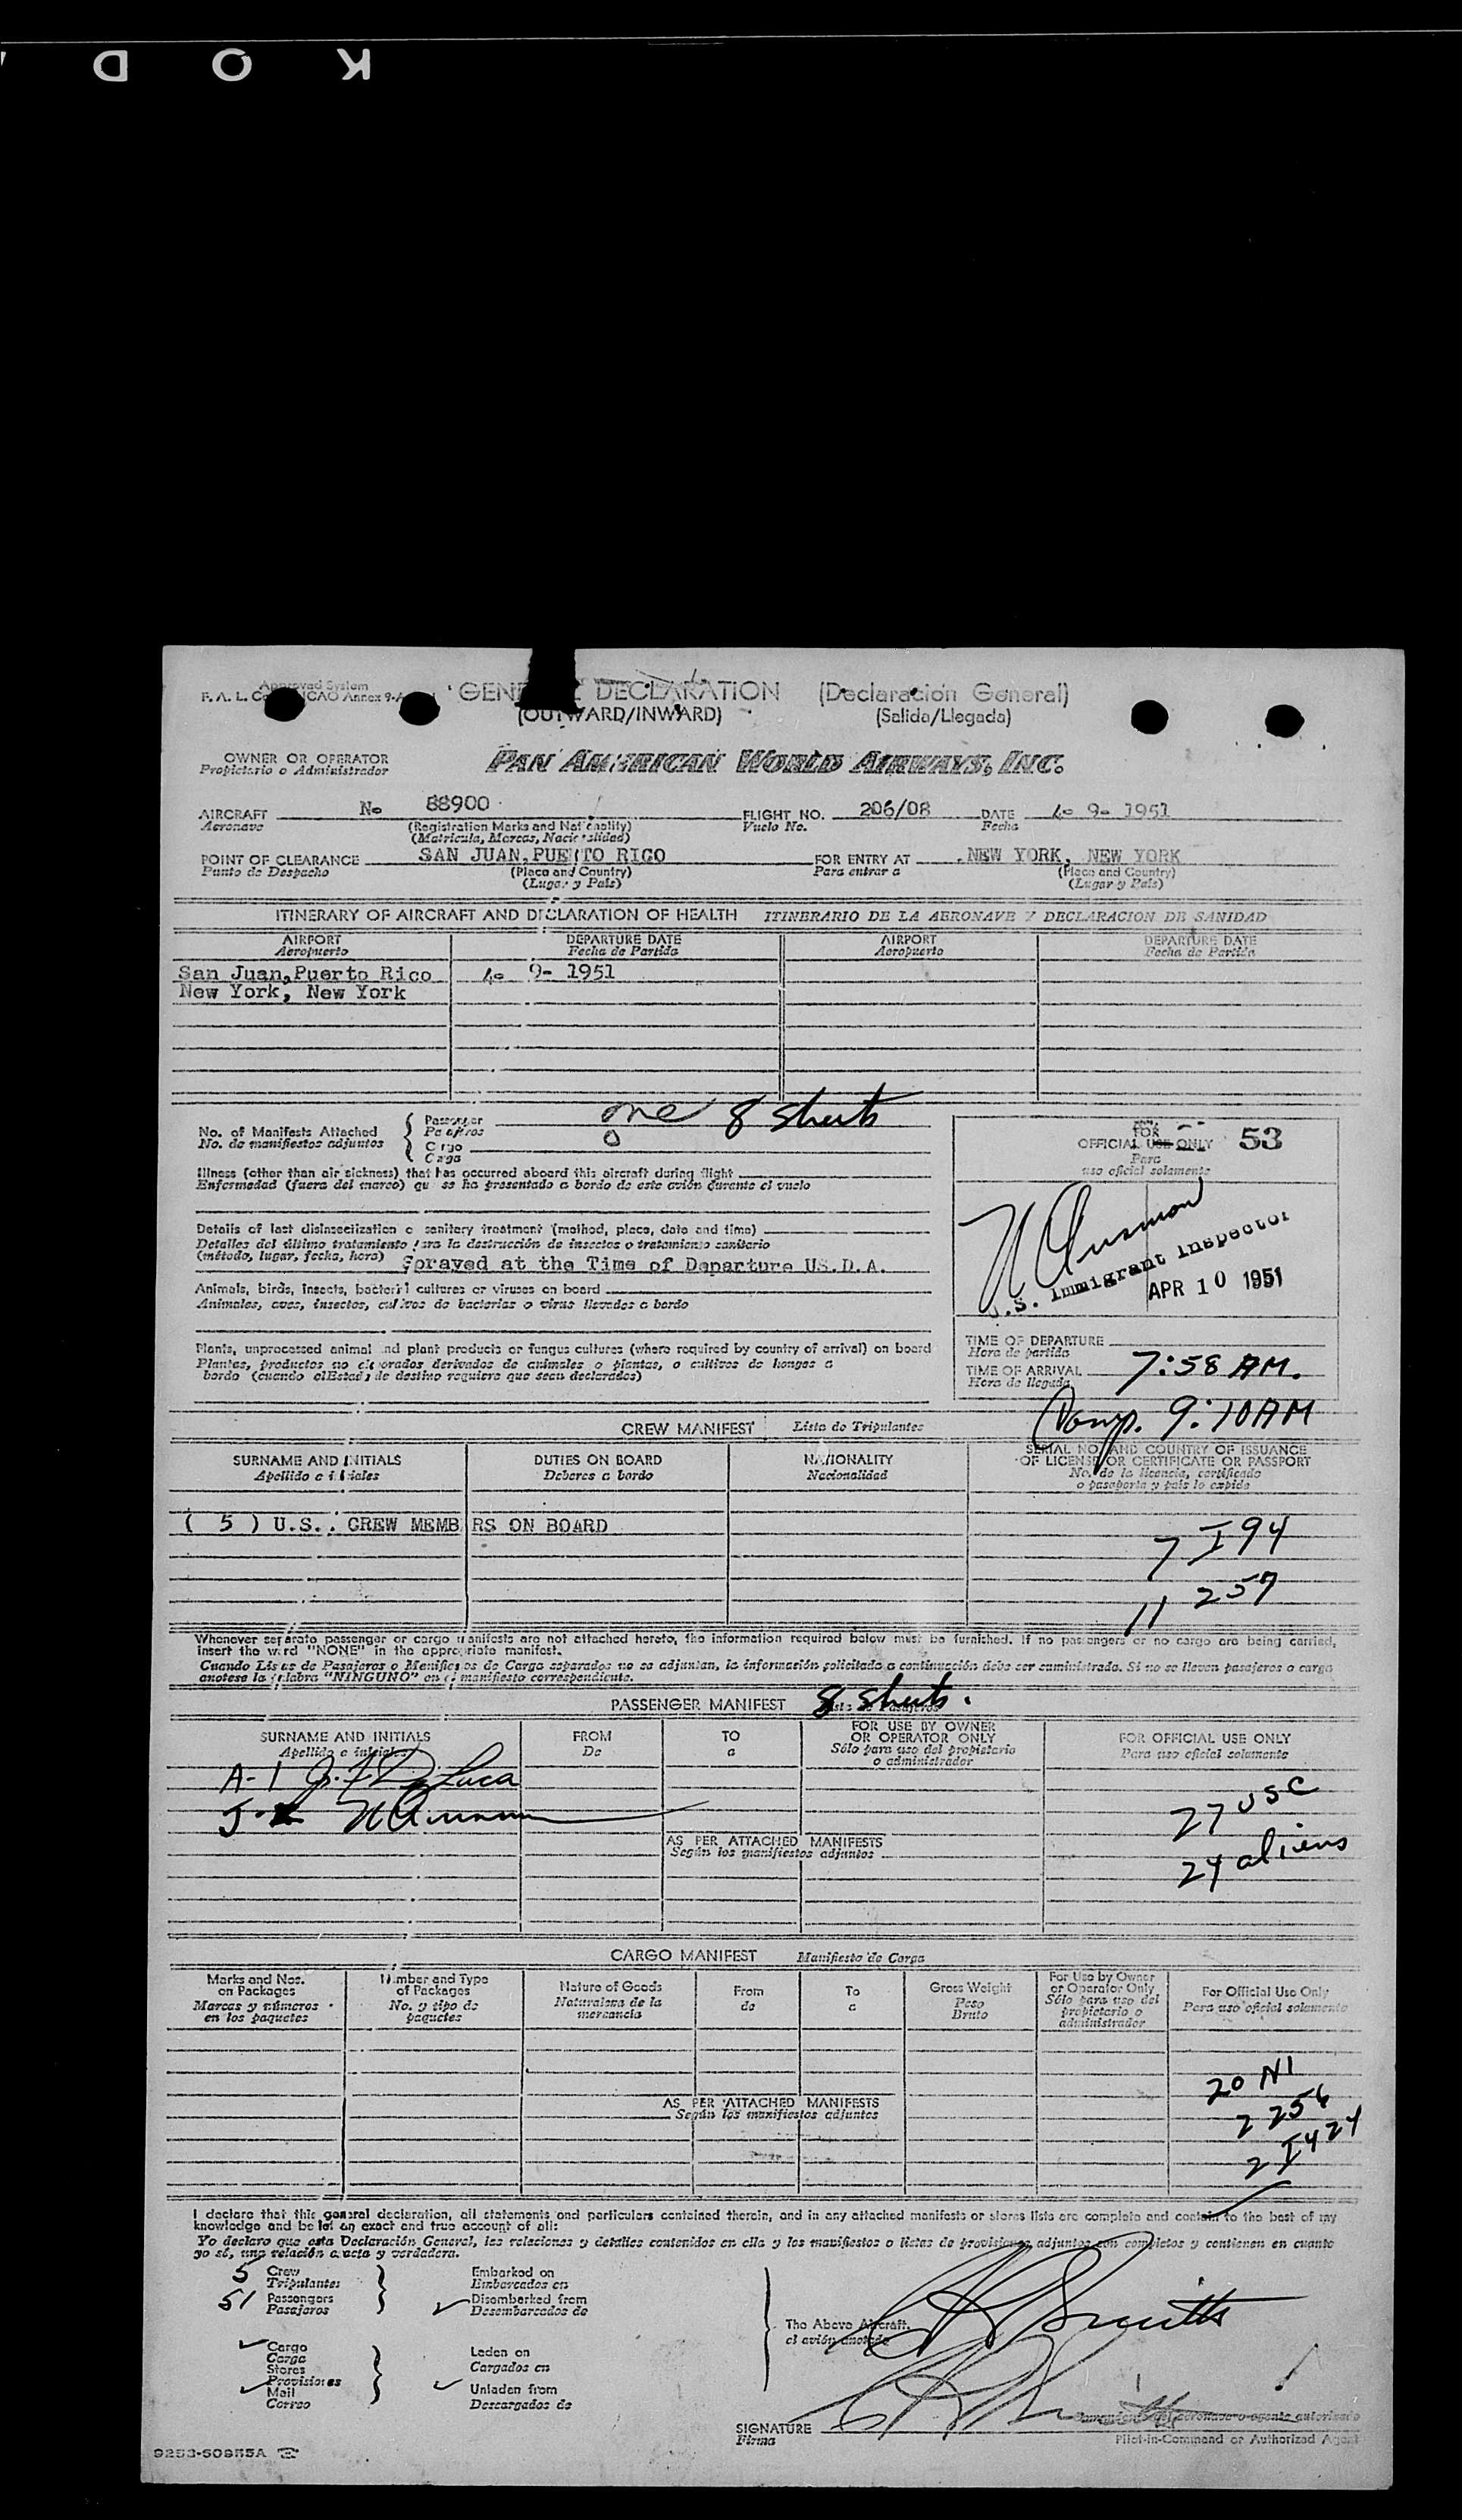 K O D
Approved System
F. A. L. ICAO Annex 9-A
GENERAL DECLARATION (Declaración General)
(OUTWARD/INWARD) (Salida/Llegada)
OWNER OR OPERATOR
Propietario o Administrador
PAN AMERICAN WORLD AIRWAYS, INC.
AIRCRAFT No 88900 FLIGHT NO. 206/08 DATE 4- 9- 1951
Aeronave (Registration Marks and Nationality) Vuelo No. Fecha
(Matricula, Marcas, Nacionalidad)
POINT OF CLEARANCE SAN JUAN, PUERTO RICO FOR ENTRY AT NEW YORK, NEW YORK
Punto de Despacho (Place and Country) Para entrar a (Place and Country)
(Lugar y País) (Lugar y País)
ITINERARY OF AIRCRAFT AND DECLARATION OF HEALTH ITINERARIO DE LA AERONAVE Y DECLARACION DE SANIDAD
AIRPORT DEPARTURE DATE AIRPORT DEPARTURE DATE
Aeropuerto Fecha de Partida Aeropuerto Fecha de Partida
San Juan, Puerto Rico 4- 9- 1951
New York, New York
No. of Manifests Attached
No. de manifiestos adjuntos
Passenger one 8 sheets
Pasajeros
Cargo
Carga
Illness (other than air sickness) that has occurred aboard this aircraft during flight
Enfermedad (fuera del mareo) que se ha presentado a bordo de este avión durante el vuelo
Details of last disinsectization or sanitary treatment (method, place, date and time)
Detalles del último tratamiento para la destrucción de insectos o tratamiento sanitario
(método, lugar, fecha, hora) Sprayed at the Time of Departure US.D.A.
Animals, birds, insects, bacterial cultures or viruses on board
Animales, aves, insectos, cultivos de bacterias o virus llevados a bordo
Plants, unprocessed animal and plant products or fungus cultures (where required by country of arrival) on board
Plantas, productos no elaborados derivados de animales o plantas, o cultivos de hongos a
bordo (cuando el Estado de destino requiera que sean declarados)
FOR
OFFICIAL USE ONLY 53
Para
uso oficial solamente
U.S. Immigrant Inspector
APR 10 1951
TIME OF DEPARTURE
Hora de partida
TIME OF ARRIVAL 7:58 AM.
Hora de llegada
Comp. 9:10 AM
CREW MANIFEST Lista de Tripulantes
SURNAME AND INITIALS DUTIES ON BOARD NATIONALITY SERIAL NO. AND COUNTRY OF ISSUANCE
Apellido e iniciales Deberes a bordo Nacionalidad OF LICENSE OR CERTIFICATE OR PASSPORT
No. de la licencia, certificado
o pasaporte y país lo expide
( 5 ) U.S.. CREW MEMBERS ON BOARD
7 I 94
11 257
Whenever separate passenger or cargo manifests are not attached hereto, the information required below must be furnished. If no passengers or no cargo are being carried,
insert the word "NONE" in the appropriate manifest.
Cuando Listas de Pasajeros o Manifiestos de Carga separados no se adjuntan, la información solicitada a continuación debe ser suministrada. Si no se llevan pasajeros o carga
anotese la palabra "NINGUNO" en el manifiesto correspondiente.
PASSENGER MANIFEST Lista de Pasajeros 8 sheets.
SURNAME AND INITIALS FROM TO FOR USE BY OWNER FOR OFFICIAL USE ONLY
Apellido e iniciales De a OR OPERATOR ONLY Para uso oficial solamente
Sólo para uso del propietario
o administrador
A-1 J. F. De Luca
27 USC
AS PER ATTACHED MANIFESTS
Según los manifiestos adjuntos
24 aliens
CARGO MANIFEST Manifiesto de Carga
Marks and Nos. Number and Type Nature of Goods From To Gross Weight For Use by Owner For Official Use Only
on Packages of Packages Naturaleza de la de a Peso or Operator Only Para uso oficial solamente
Marcas y números No. y tipo de mercancia Bruto Sólo para uso del
en los paquetes paquetes propietario o
administrador
20 NI
AS PER ATTACHED MANIFESTS
Según los manifiestos adjuntos
2 256
2 I 424
I declare that this general declaration, all statements and particulars contained therein, and in any attached manifests or stores lists are complete and contain to the best of my
knowledge and belief an exact and true account of all:
Yo declaro que esta Declaración General, las relaciones y detalles contenidos en ella y los manifiestos o listas de provisiones adjuntos son completos y contienen en cuanto
yo sé, una relación exacta y verdadera.
5 Crew Embarked on
Tripulantes Embarcados en
51 Passengers Disembarked from
Pasajeros Desembarcados de
The Above Aircraft.
el avión anotado
Cargo Laden on
Carga Cargados en
Stores
Provisiones Unladen from
Mail Descargados de
Correo
SIGNATURE
Firma
Comandante del aeronave o agente autorizado
Pilot-in-Command or Authorized Agent
9253-50955A